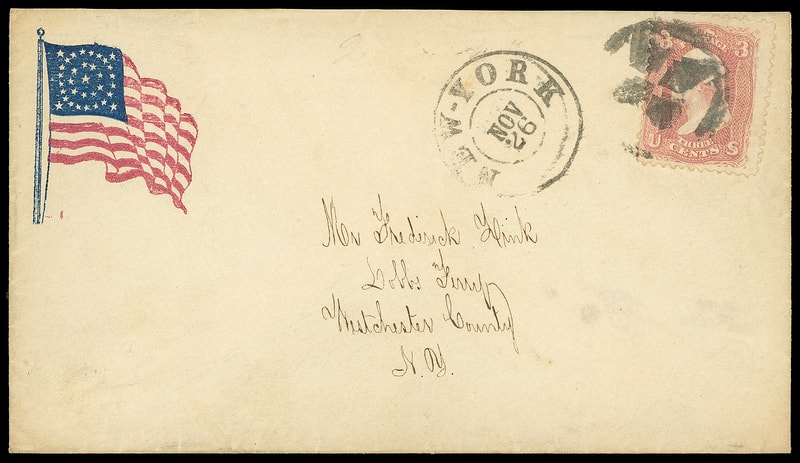 NEW-YORK
NOV
26
3 3
U THREE S
CENTS
Mr Frederick Link
Dobbs Ferry
Westchester County
N.Y.